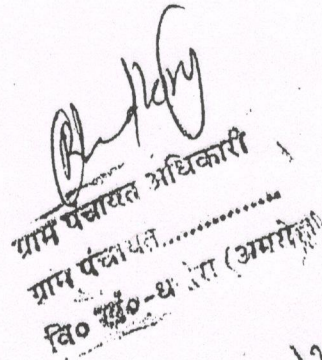 ग्राम पंचायत अधिकारी
ग्राम पंचायत...............
वि० खं०- (अमरोहा)